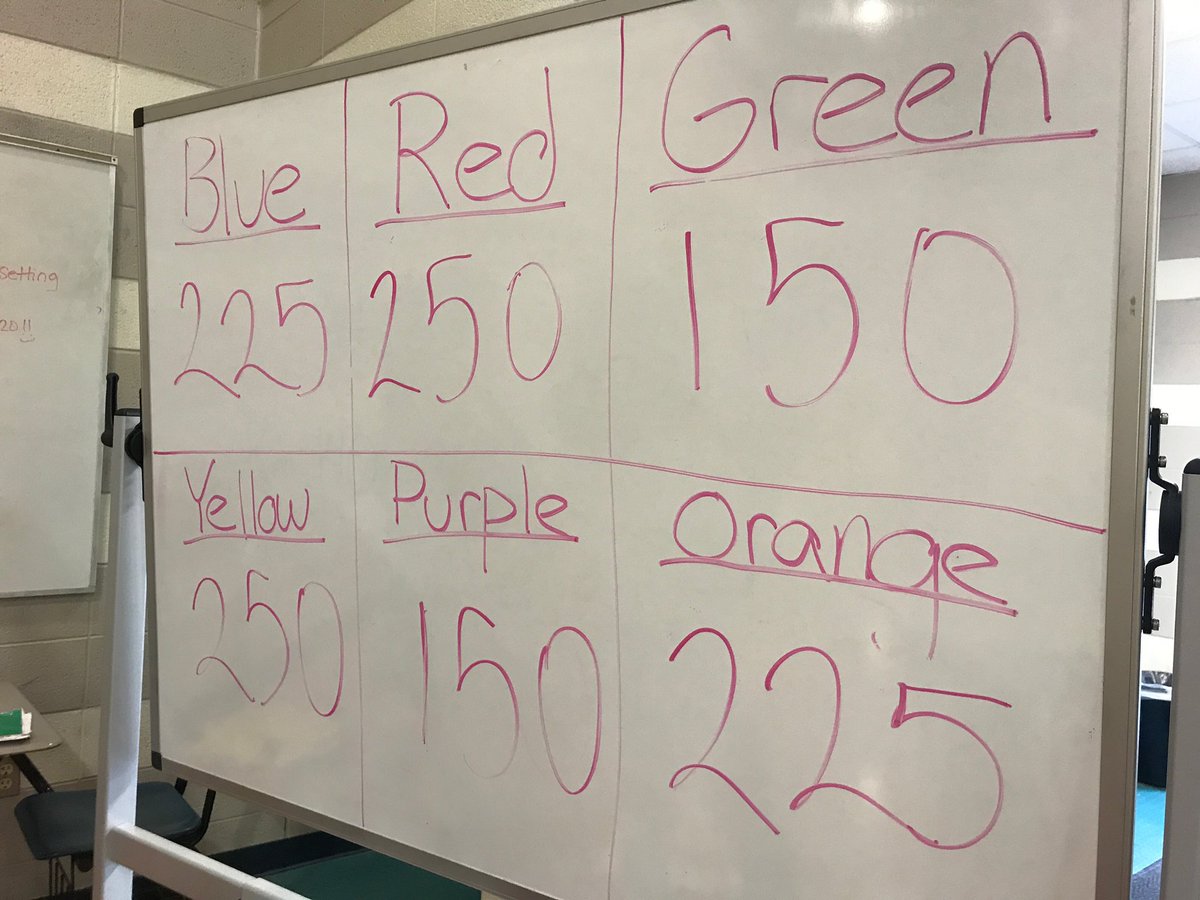 Blue Red Green
225 250 150
Yellow Purple Orange
250 150 225
setting
20!!